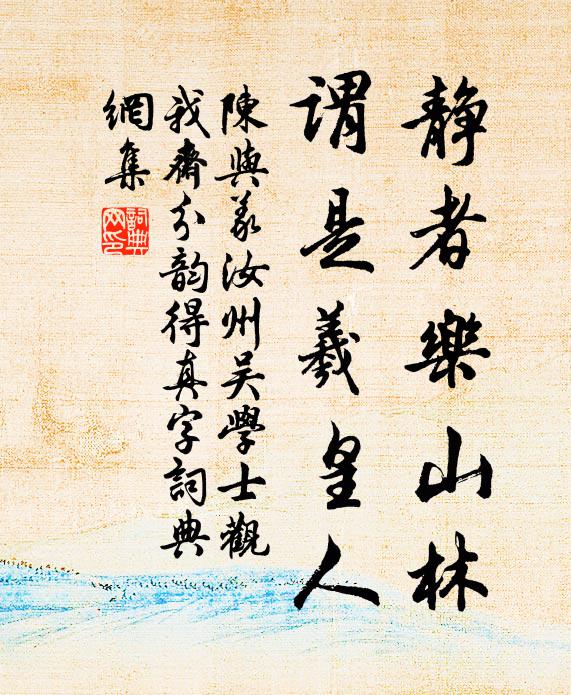 静者樂山林
謂是羲皇人
陳與義汝州吴學士觀
我齋分韵得真字詞典
網集
詞典網印